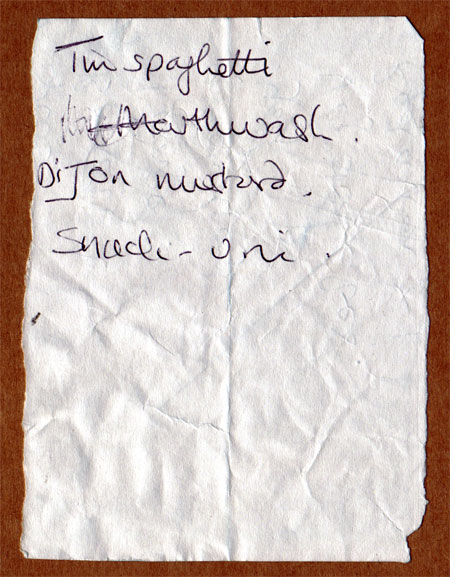 Tin spaghetti
Mouthwash.
Dijon mustard.
Snack - uni.